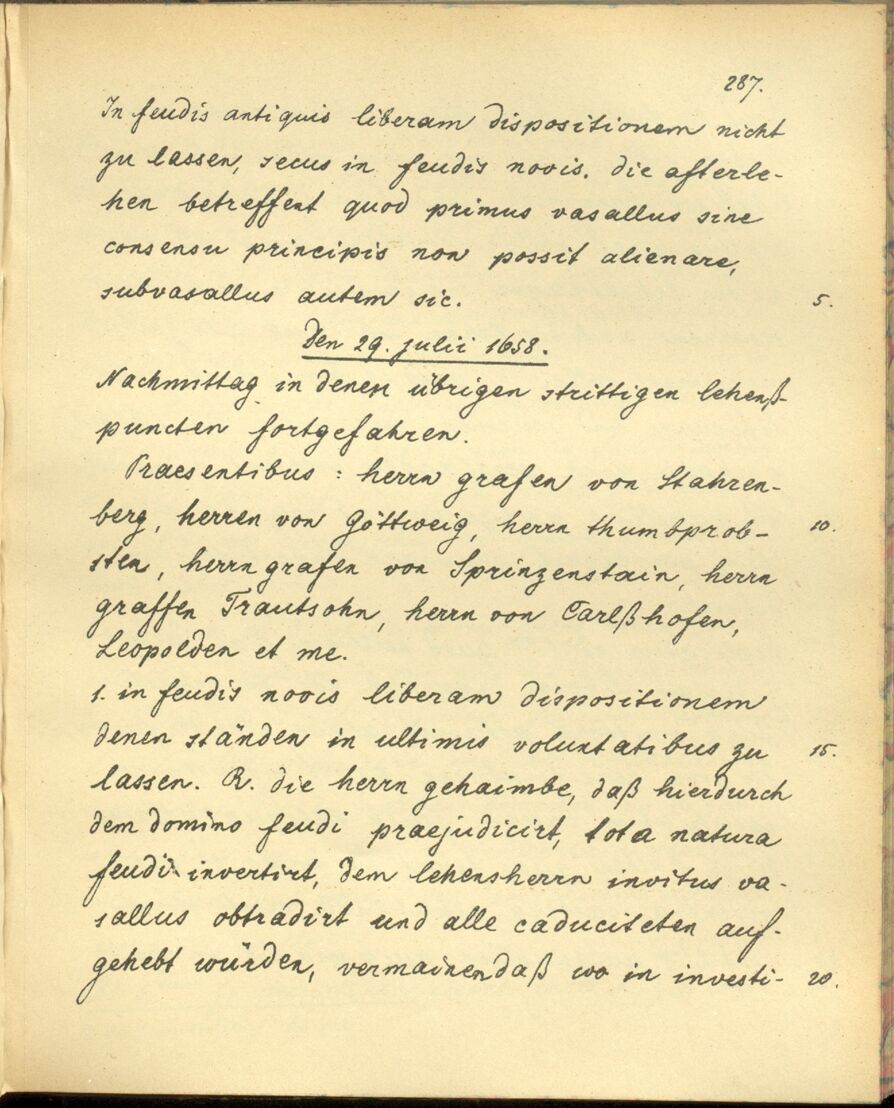 287.
In feudis antiquis liberam dispositionem nicht
zu lassen, secus in feudis novis. die afterle-
hen betreffent quod primus vasallus sine
consensu principis non possit alienare,
subvasallus autem sic. 5.
Den 29. julii 1658.
Nachmittag in denen übrigen strittigen lehenß-
puncten fortgefahren.
Praesentibus: herrn grafen von Stahren-
berg, herren von Göttweig, herrn thumbprob- 10.
sten, herrn grafen von Sprinzenstain, herrn
graffen Trautsohn, herrn von Carlßhofen,
Leopolden et me.
1. in feudis novis liberam dispositionem
denen ständen in ultimis voluntatibus zu 15.
lassen. R. die herrn gehaimbe, daß hierdurch
dem domino feudi praejudicirt, tota natura
feudi invertirt, dem lehensherrn invitus va-
sallus obtradirt und alle caduciteten auf-
gehebt würden, vermainen daß wo in investi- 20.